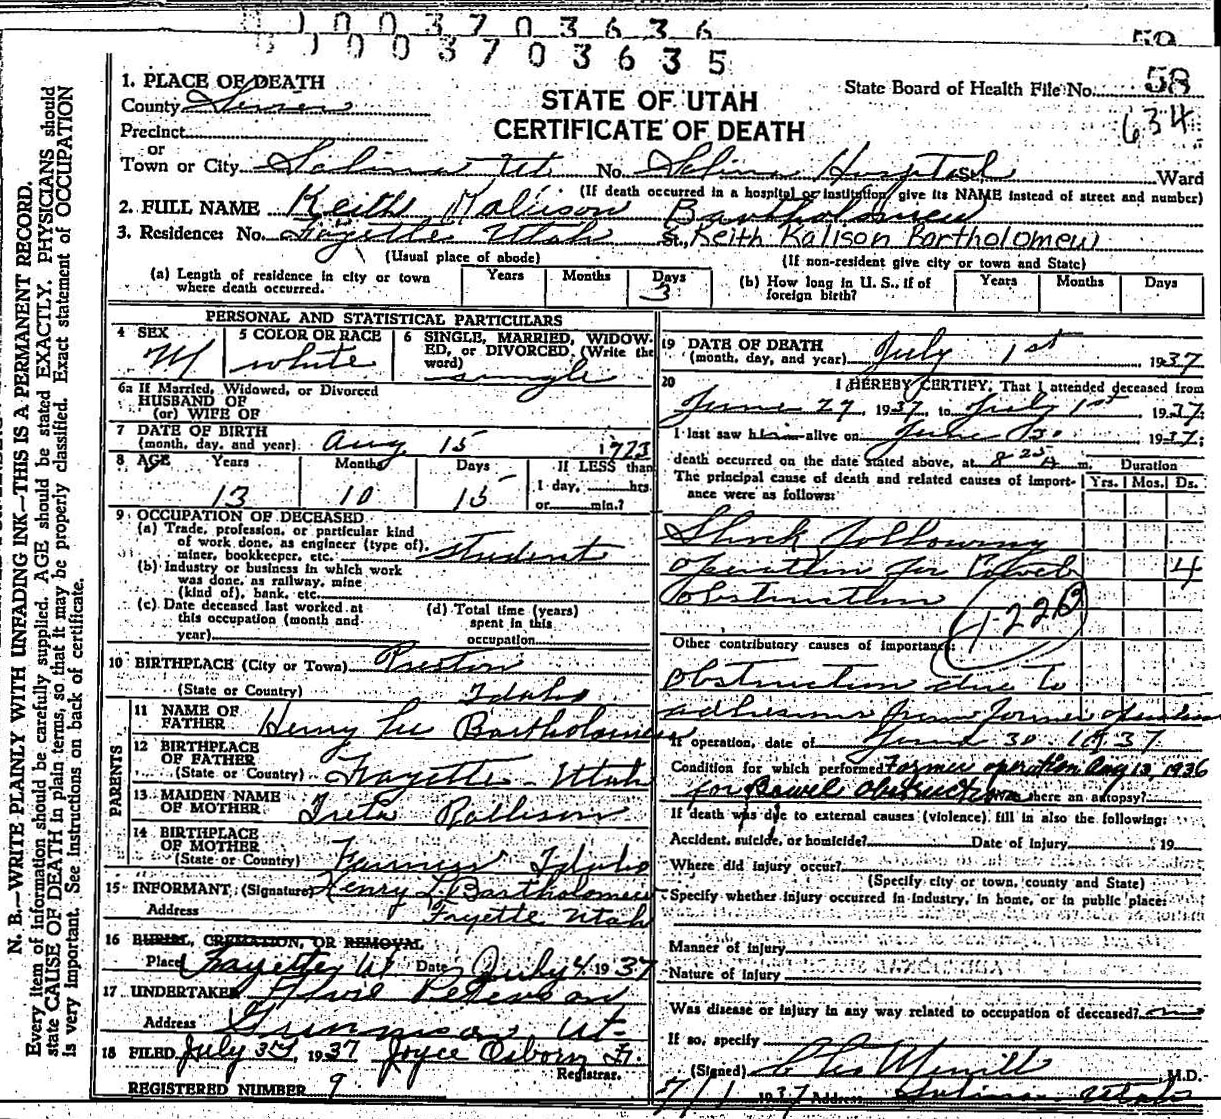 8 1 0 0 3 7 0 3 6 3 6
8 1 0 0 3 7 0 3 6 3 5
59
58
634
State Board of Health File No.
STATE OF UTAH
CERTIFICATE OF DEATH
1. PLACE OF DEATH
County Sevier
Precinct
or
Town or City Salina Ut. No. Salina Hospital Ward
(If death occurred in a hospital or institution, give its NAME instead of street and number)
2. FULL NAME Keith Kalison Bartholomew
3. Residence: No. Fayette Utah St., Keith Kalison Bartholomew
(Usual place of abode) (If non-resident give city or town and State)
(a) Length of residence in city or town where death occurred. Years Months Days 3
(b) How long in U. S., if of foreign birth? Years Months Days
PERSONAL AND STATISTICAL PARTICULARS
4 SEX M
5 COLOR OR RACE white
6 SINGLE, MARRIED, WIDOWED, or DIVORCED (Write the word) single
6a If Married, Widowed, or Divorced
HUSBAND OF
(or) WIFE OF
7 DATE OF BIRTH
(month, day, and year) Aug 15 1923
8 AGE Years Months Days IF LESS than
13 10 15 1 day, hrs.
or min.?
9 OCCUPATION OF DECEASED
(a) Trade, profession, or particular kind
of work done, as engineer (type of),
miner, bookkeeper, etc. student
(b) Industry or business in which work
was done, as railway, mine
(kind of), bank, etc.
(c) Date deceased last worked at
this occupation (month and
year)
(d) Total time (years)
spent in this
occupation
10 BIRTHPLACE (City or Town) Preston
(State or Country) Idaho
PARENTS
11 NAME OF
FATHER Henry Lee Bartholomew
12 BIRTHPLACE
OF FATHER
(State or Country) Fayette Utah
13 MAIDEN NAME
OF MOTHER Rallison
14 BIRTHPLACE
OF MOTHER
(State or Country) Idaho
15 INFORMANT (Signature) Henry L. Bartholomew
Address Fayette Utah
16 BURIAL, CREMATION, OR REMOVAL
Place Fayette Ut Date July 4 1937
17 UNDERTAKER Peterson
Address Gunnison Ut
18 FILED July 3rd, 1937 Joyce Osborn
Registrar.
REGISTERED NUMBER 9
19 DATE OF DEATH
(month, day, and year) July 1st 1937
20 I HEREBY CERTIFY, That I attended deceased from
June 29 1937, to July 1st 1937;
I last saw him alive on June 30 1937;
death occurred on the date stated above, at 8 25 A m. Duration
The principal cause of death and related causes of import-
ance were as follows: Yrs. Mos. Ds.
Shock following
operation for bowel 4
obstruction
122B
Other contributory causes of importance:
obstruction due to
adhesions from former operation
If operation, date of June 30 1937
Condition for which performed Former operation Aug 13, 1936
for Bowel Obstruction Was there an autopsy?
If death was due to external causes (violence) fill in also the following:
Accident, suicide, or homicide? Date of Injury 19
Where did injury occur?
(Specify city or town, county and State)
Specify whether injury occurred in industry, in home, or in public place:
Manner of injury
Nature of Injury
Was disease or injury in any way related to occupation of deceased? no
If so, specify
(Signed) Merrill M.D.
7/1 1937 Address Salina Utah
N. B.—WRITE PLAINLY WITH UNFADING INK—THIS IS A PERMANENT RECORD.
Every item of information should be carefully supplied. AGE should be stated EXACTLY. PHYSICIANS should
state CAUSE OF DEATH in plain terms, so that it may be properly classified. Exact statement of OCCUPATION
is very important. See instructions on back of certificate.